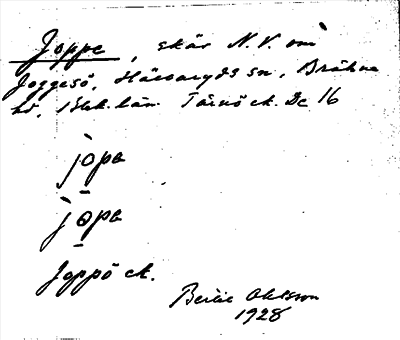 Joppe, skär N.V. om
Joggesö, Hällaryds sn, Bräkne
hd, Blek. län. Tärnö ek. Dc 16
jòpa
jòpa
Joppö ek.
Bertil Ohlsson
1928